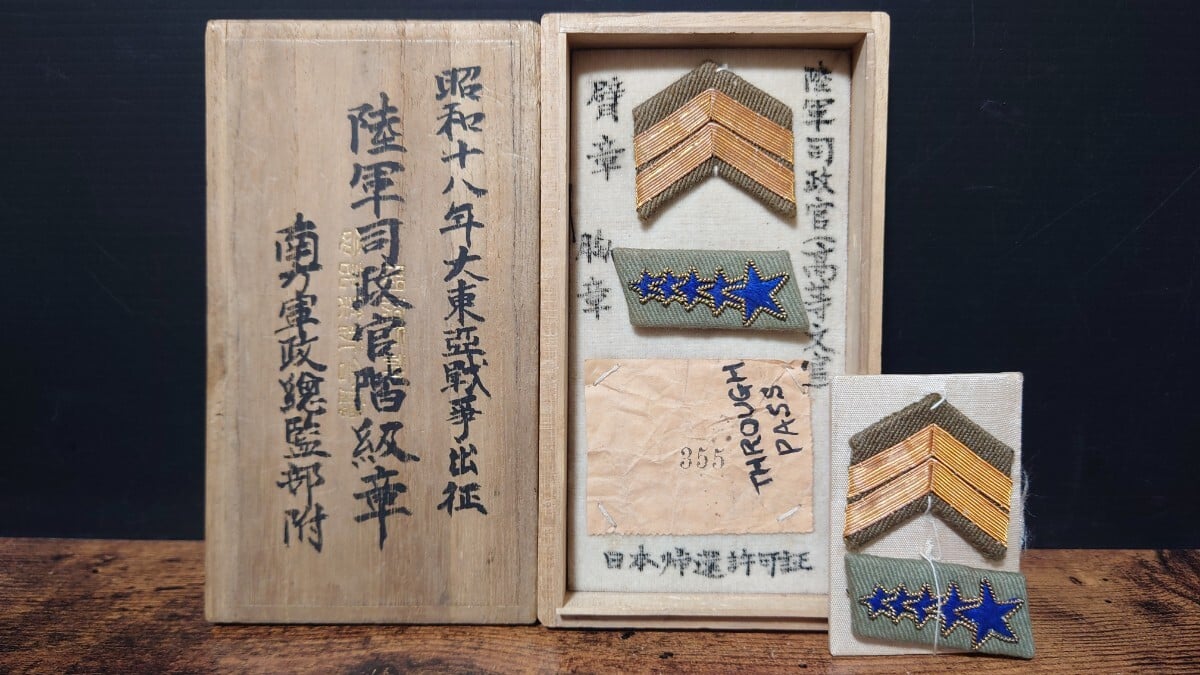 昭和十八年大東亞戰爭出征
陸軍司政官階級章
南方軍政總監部附
陸軍司政官(高等文官)
臂章
胸章
THROUGH
PASS
355
日本帰還許可証